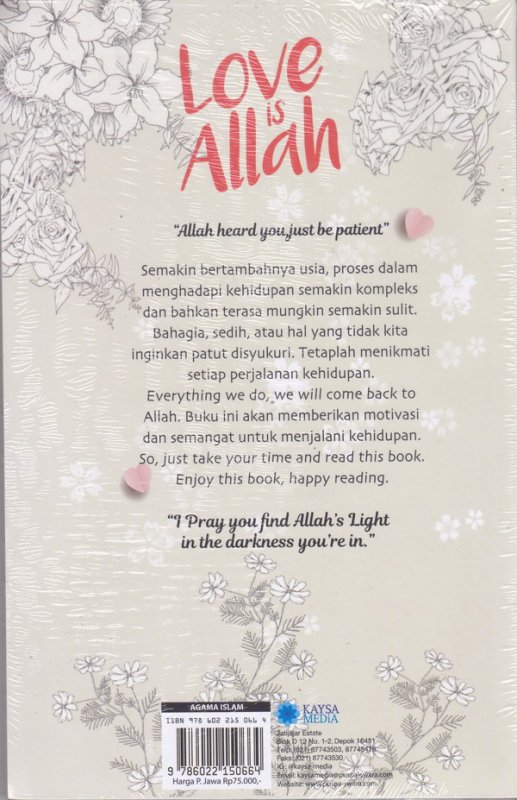 Love
is
Allah
"Allah heard you, just be patient"
Semakin bertambahnya usia, proses dalam
menghadapi kehidupan semakin kompleks
dan bahkan terasa mungkin semakin sulit.
Bahagia, sedih, atau hal yang tidak kita
inginkan patut disyukuri. Tetaplah menikmati
setiap perjalanan kehidupan.
Everything we do, we will come back to
Allah. Buku ini akan memberikan motivasi
dan semangat untuk menjalani kehidupan.
So, just take your time and read this book.
Enjoy this book, happy reading.
"I Pray you find Allah's Light
in the darkness you're in."
AGAMA ISLAM
ISBN 978 602 215 066 4
9 786022 150664
Harga P. Jawa Rp75.000,-
KAYSA
MEDIA
Jatijajar Estate
Blok D 12 No. 1-2, Depok 16451
Telp. (021) 87743503,
Faks. (021) 87743530
IG: @kaysa-media